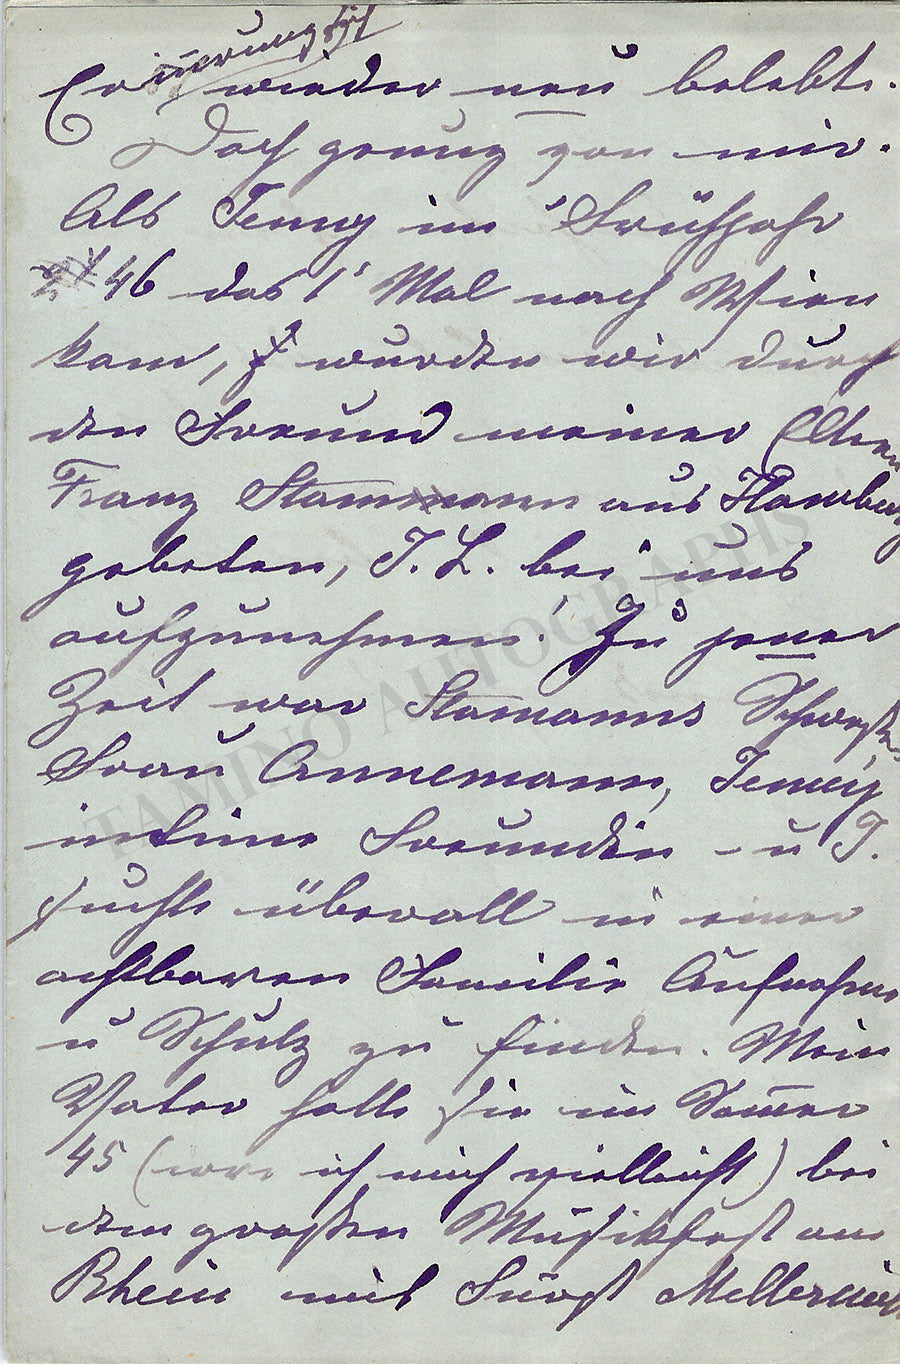 Erinnerung ist
wieder neu belebte.
Doch genug von mir.
Als Jenny im Frühjahr
46 das 1' Mal nach Wien
kam, wurden wir durch
den Freund meiner Eltern
Franz Stammann aus Hamburg
gebeten, J. L. bei uns
aufzunehmen! Zu jener
Zeit war Stamanns Schwester
Frau Annemann, Jenny's
intime Freundin – u J.
suchte überall in einer
achtbaren Familie Aufnahme
u Schutz zu finden. Mein
Vater hatte sie im Som̄er
45 (irre ich mich vielleicht) bei
dem großen Musikfest am
Rhein mit Fürst Metternich
TAMINO AUTOGRAPHS